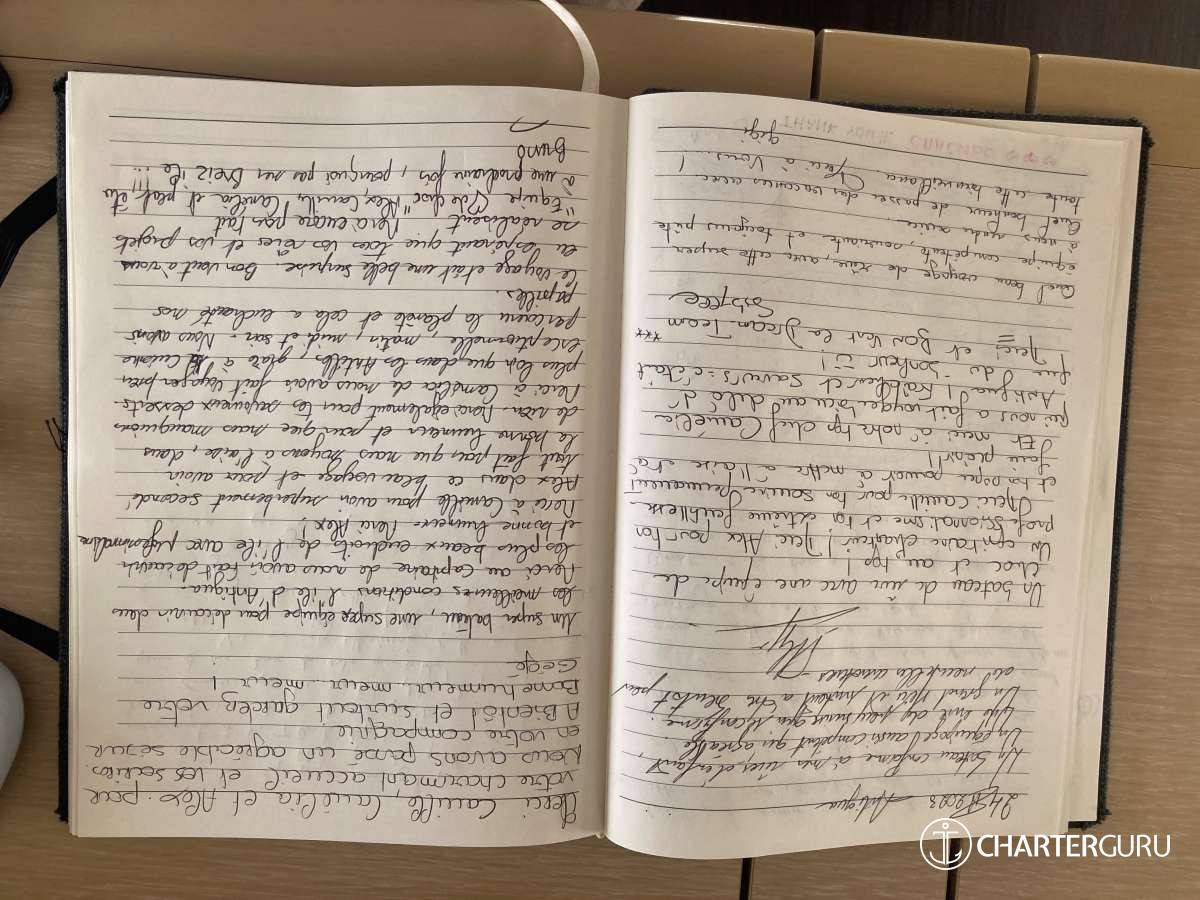 2023 Antigua
Un bateau conforme à mes rêves d'enfant,
Un équipage aussi compétent qu'agréable
Un grand merci et surtout à très bientôt pour
de nouvelles aventures -
Un bateau de rêve avec une équipe de
choc et au top !
Un capitaine chanteur ! Merci Alex pour ton
professionnalisme et ta extrême gentillesse
Merci Camille pour ton sourire permanent
et ton super pouvoir à mettre à l'aise et à
faire plaisir !!
Et merci à notre top chef Camélia
qui nous a fait voyager au delà d'
Antigua ! Fraîcheur et saveurs = c'était
que du bonheur !
Merci et Bon Vent la Dream Team ***
Quel beau voyage de rêve, avec cette super
équipe compétente, souriante et toujours prête
à nous rendre service.
Quel bonheur de passer des vacances avec
toute cette bienveillance. Merci à Vous... !
gigi
THANK YOU
Merci Camille, Camélia et Alex pour
votre charmant accueil et vos sourires
Nous avons passé un agréable séjour
en votre compagnie
A Bientôt et surtout gardez votre
Bonne humeur... meur... meur !
Gégé
Un super bateau, une super équipe pour découvrir dans
les meilleures conditions l'île d'Antigua.
Merci au Capitaine de nous avoir fait découvrir
les plus beaux endroits de l'île avec professionnalisme
et bonne humeur. Merci Alex.
Merci à Camille pour avoir superbement secondé
Alex dans ce beau voyage et pour avoir
tout fait pour que nous soyons à l'aise, dans
la bonne humeur et pour que nous manquions
de rien. Merci également pour tes savoureux desserts.
Merci à Camélia de nous avoir fait voyager bien
plus loin que dans les Antilles grâce à ta Cuisine
exceptionnelle, matin, midi et soir. Nous avons
parcouru la planète et cela a enchanté nos
papilles.
Le voyage était une belle surprise. Bon vent à vous
en espérant que tous vos rêves et vos projets
se réalisent. Merci encore pour tout
"Equipe de choc" Alex, Camille, Camélia et peut être
à une prochaine fois, pourquoi pas sur Breiz île...
Bruno
CHARTERGURU